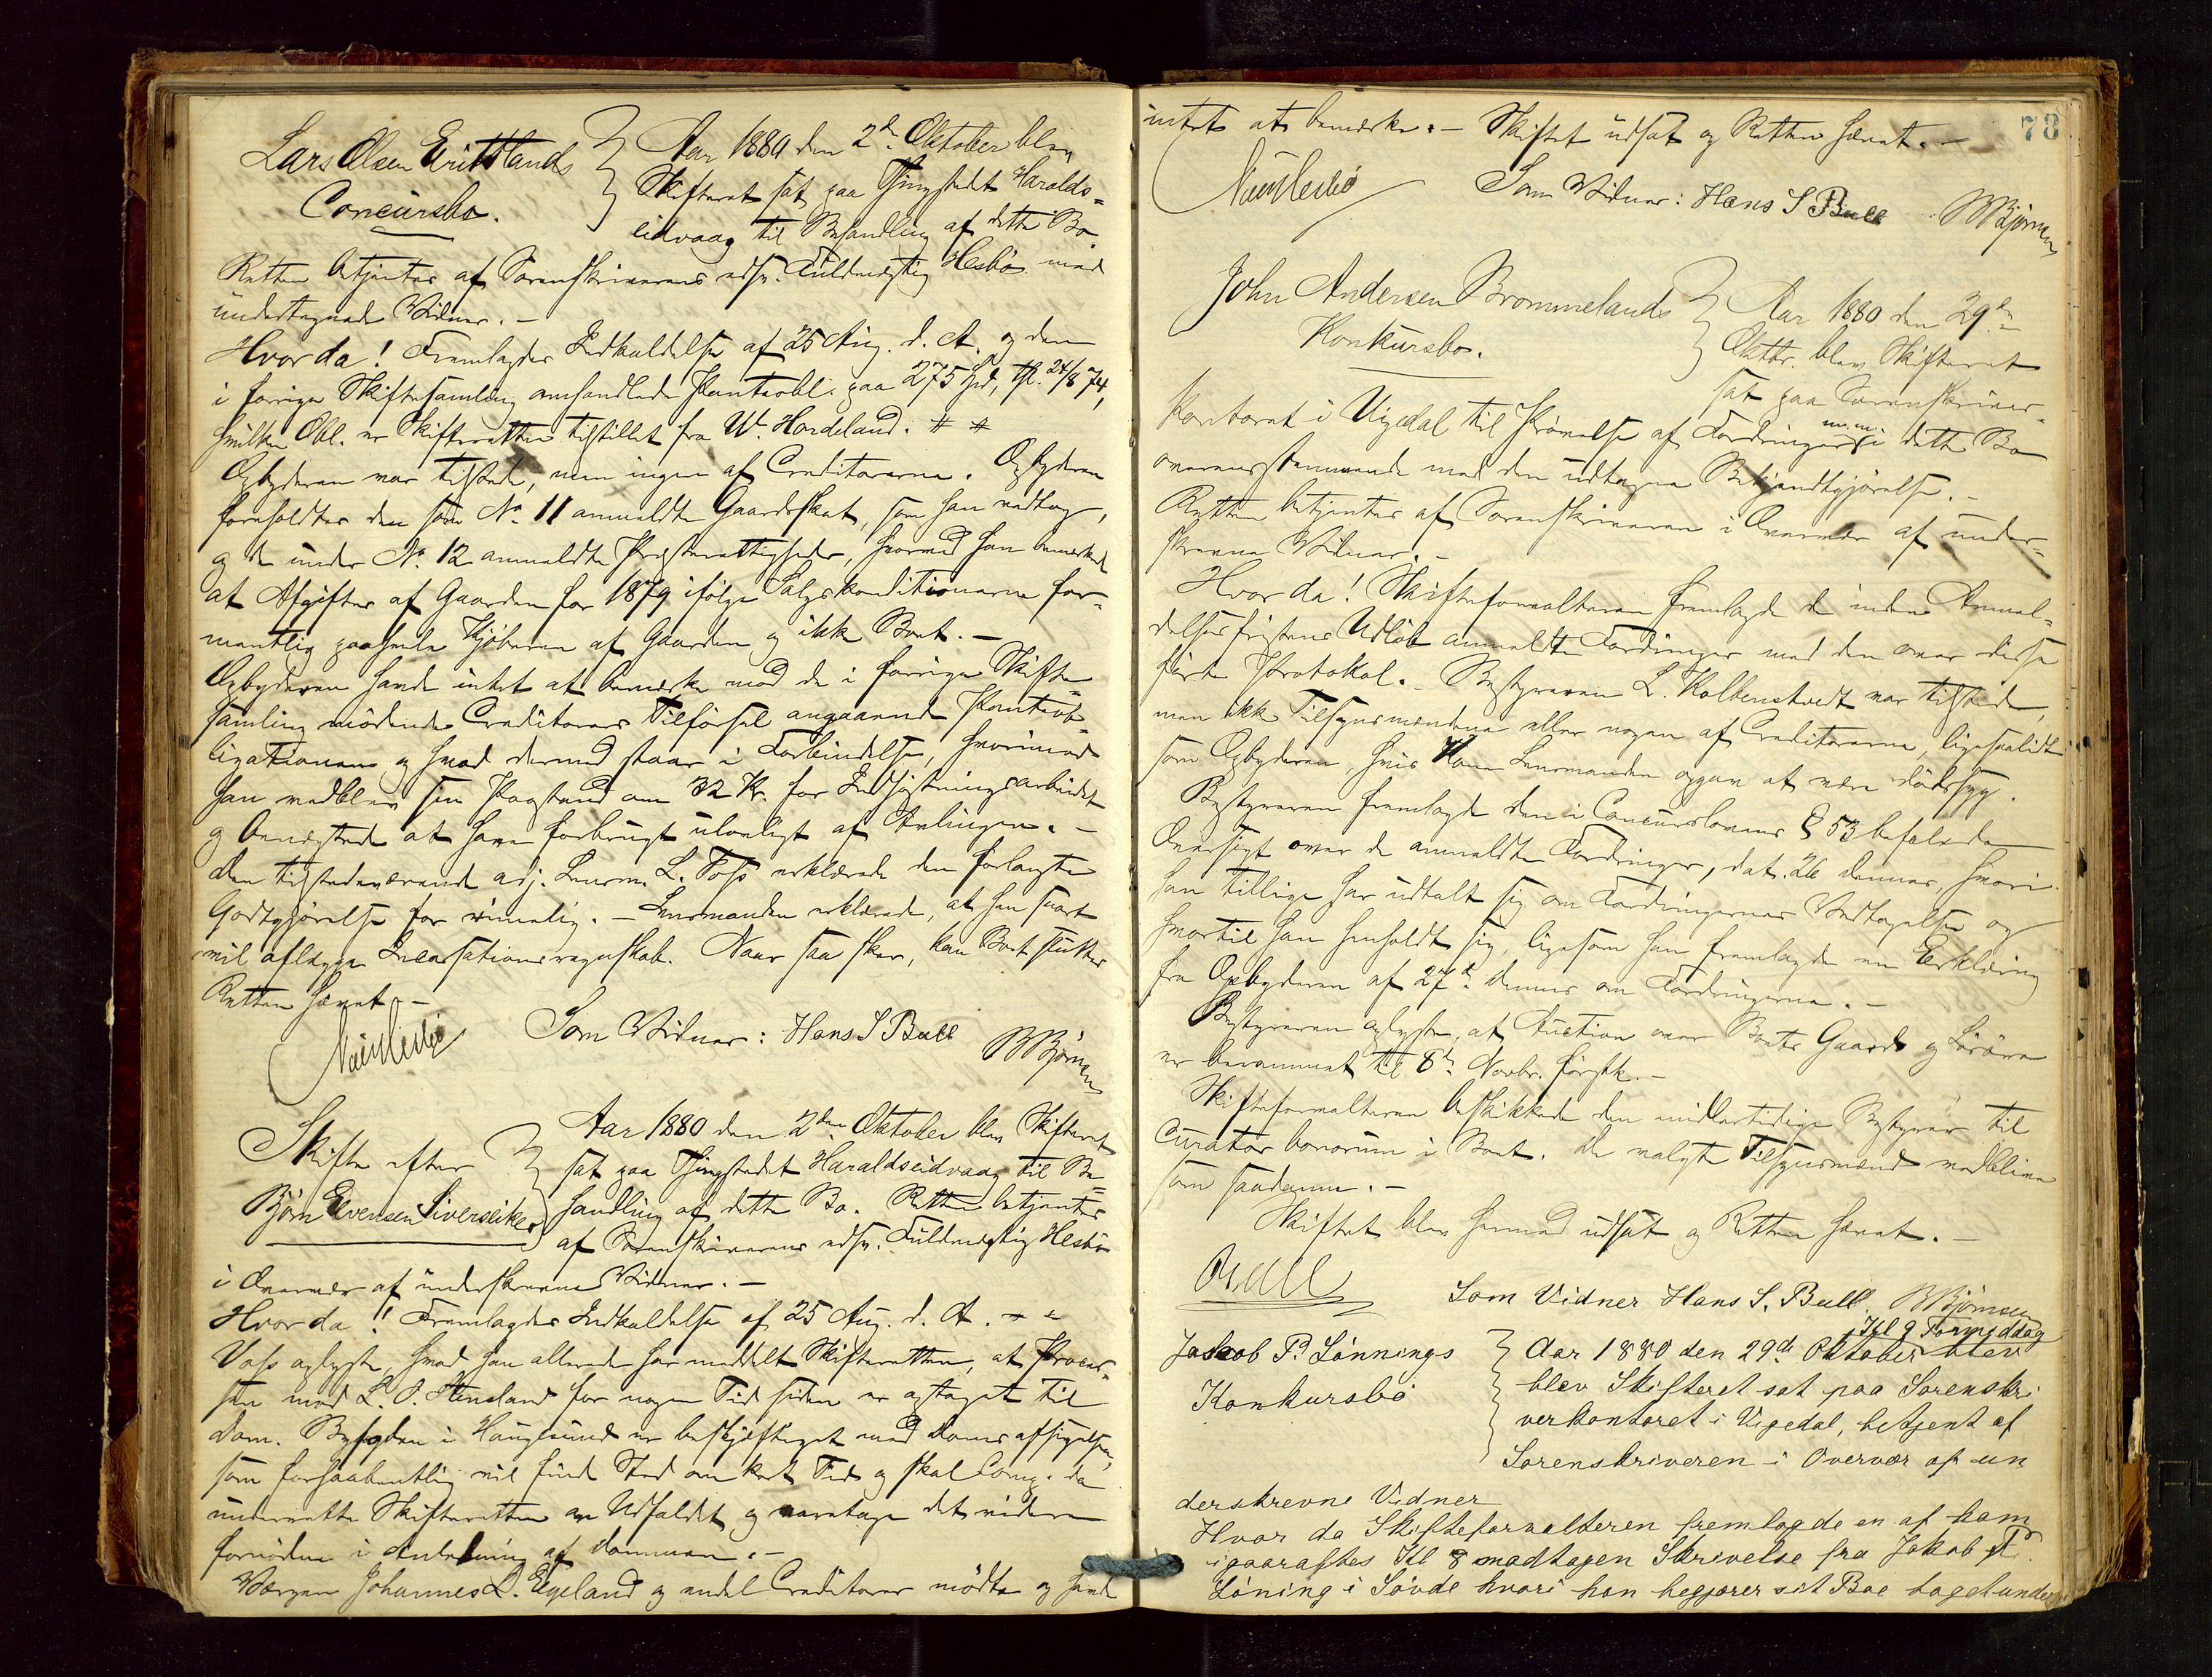 Lars Olsen Erittslands
Concursbo.
Aar 1880 den 2d. Oktober blev
Skifteret sat paa Thingstedet Haralds=
eidvaag til Behandling af dette Bo.
Retten betjentes af Sorenskriverens edsv. Fuldmægtig Hesbø med
undertegnede Vidner. –
Hvorda! Fremlagdes Indkaldelse af 25 Aug. d. A. og den
i forrige Skiftesamling omhandlede Pantobl. paa 275 Spd, thl. 24/8 74,
hvilken Obl. er Skifteretten tilstillet fra W. Hordeland.
Opbyderen var tilstede, men ingen af Creditorerne. Opbyderen
foreholdtes den som No. 11 anmeldte Gaardsskat, som han vedtog,
og de under No. 12 anmeldte Præsterettigheder, hvorved han bemærkede
at Afgifter af Gaarden for 1879 ifølge Salgskonditionerne for=
mentlig paahvile Kjøberen af Gaarden og ikke Boet. –
Opbyderen havde intet at bemærke mod de i forrige Skifte=
samling mødende Creditorers Tilførsel angaaende Pantob=
ligationen og hvad dermed staar i Forbindelse, hvorimod
han vedblev sin Paastand om 32 Kr. for Indhøstningsarbeidet
og benegtede at have forbrugt ulovligt af Avlingen. –
Den tilstedeværende adj. Lensm. L. Foss erklærede den forlangte
Godtgjørelse for rimelig. – Lensmanden erklærede, at han snart
vil aflægge Incassationsregnskab. Naar saa sker, kan Boet sluttes
Retten hævet. –
Som Vidner: Hans S Bull BBjørnsen
Skifte efter
Bjørn Elvensen Siverseikes
Aar 1880 den 2den Oktober blev Skifteret
sat paa Thingstedet Haraldseidvaag til Be=
handling af dette Bo. Retten betjentes
af Sorenskriverens edsv. Fuldmægtig Hesbø
i Overvær af underskrevne Vidner. –
Hvorda! Fremlagdes Indkaldelse af 25 Aug. d. A.
Voss oplyste, hvad han allerede har meddelt Skifteretten, at Proces=
sen mod L. O. Stensland for nogen Tid siden er optaget til
Dom. Byfogden i Haugesund er beskjæftiget med Doms afsigelse,
som forhaabentlig vil finde Sted om kort Tid og skal Comp. da
underrette Skifteretten om Udfaldet og varetage det videre
fornødne i Anledning af Dommen. –
Værgen Johannes L. Egeland og endel Creditorer mødte og havde
78
intet at bemærke. – Skiftet udsat og Retten hævet. –
Som Vidner: Hans S Bull BBjørnsen
John Andersen Brommelands
Konkursbo.
Aar 1880 den 29de
Oktbr. blev Skifteret
sat paa Sorenskriver=
kontoret i Vigedal til Prøvelse af Fordringer m.m. i dette Bo
overensstemmende med den udtagne Bekjendtgjørelse. –
Retten betjentes af Sorenskriveren i Overvær af under=
skrevne Vidner. –
Hvor da! Skifteforvalteren fremlagde de inden Anmel=
delsesfristens Udløb anmeldte Fordringer med den over disse
førte Protokol. – Bestyreren L. Kolbenstvedt var tilstede,
men ikke Tilsynsmændene eller nogen af Creditorerne, ligesaalidt
som Opbyderen, hvis Kone Lensmanden opgav at være dødssyg.
Bestyreren fremlagde den i Concurslovens § 53 befalede
Oversigt over de anmeldte Fordringer, dat. 26 dennes, hvori
han tillige har udtalt sig om Fordringernes Vedtagelse og
hvortil han henholdt sig, ligesom han fremlagde en Erklæring
fra Opbyderen af 27d. dennes om Fordringerne. –
Bestyreren oplyste, at Auction over Boets Gaard og Løsøre
er berammet til 8d. Novbr. førstk. –
Skifteforvalteren beskikkede den midlertidige Bestyrer til
Curator bonorum i Boet. De valgte Tilsynsmænd vedblive
som saadanne. –
Skiftet blev hermed udsat og Retten hævet. –
Som Vidner Hans S. Bull. BBjørnsen
Jaskob P. Lønnings
Konkursbo
Kl 9 Formiddag
Aar 1880 den 29de Oktober blev
blev Skifteret sat paa Sorenskri
verkontoret i Vigedal, betjent af
Sorenskriveren i Overvær af un
derskrevne Vidner
Hvor da Skifteforvalteren fremlagde en af ham
igaaraftes Kl 8 modtagen Skrivelse fra Jakob P.
Løning i Søvde hvori han begjærer sit Boe taget under